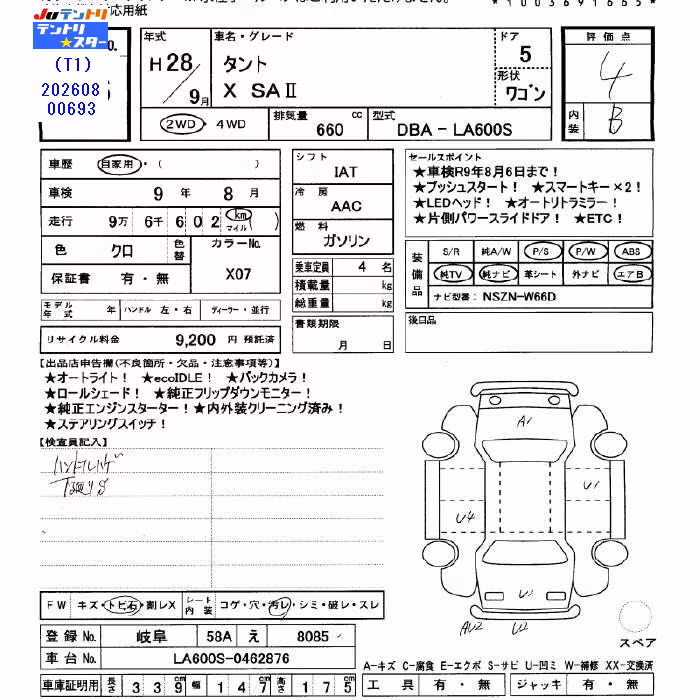 応用紙
*1003691665*
Juテントリ
テントリ
★スター
(T1)
202608
00693
年式 H28/9月
車名・グレード タント X SAⅡ
ドア 5
形状 ワゴン
評価点 4
内装 B
2WD・4WD
排気量 660 cc
型式 DBA-LA600S
車歴 自家用・( )
車検 9年 8月
走行 9万 6千 602 km マイル( )
色 クロ 色替 カラーNo. X07
保証書 有・無
シフト IAT
冷房 AAC
燃料 ガソリン
乗車定員 4 名
積載量 kg
総重量 kg
書類期限 月 日
セールスポイント
★車検R9年8月6日まで！
★プッシュスタート！ ★スマートキー×2！
★LEDヘッド！ ★オートリトラミラー！
★片側パワースライドドア！ ★ETC！
装備品 S/R 純A/W P/S P/W ABS
純TV 純ナビ 革シート 外ナビ エアB
ナビ型番: NSZN-W66D
後日品
モデル年式 年 ハンドル 左・右 ディーラー・並行
リサイクル料金 9,200 円 預託済
【出品店申告欄(不良箇所・欠品・注意事項等)】
★オートライト！ ★ecoIDLE！ ★バックカメラ！
★ロールシェード！ ★純正フリップダウンモニター！
★純正エンジンスターター！★内外装クリーニング済み！
★ステアリングスイッチ！
【検査員記入】
ハンドルハゲ
下廻りS
A1
U1
U4
AU2 U2
FW キズ・トビ石・割レX
シート内装 コゲ・穴・汚レ・シミ・破レ・スレ
スペア
登録No. 岐阜 58A え 8085
車台No. LA600S-0462876
A-キズ C-腐食 E-エクボ S-サビ U-凹ミ W-補修 XX-交換済
車庫証明用 長さ 339cm 幅 147cm 高さ 175cm
工具 有・無 ジャッキ 有・無